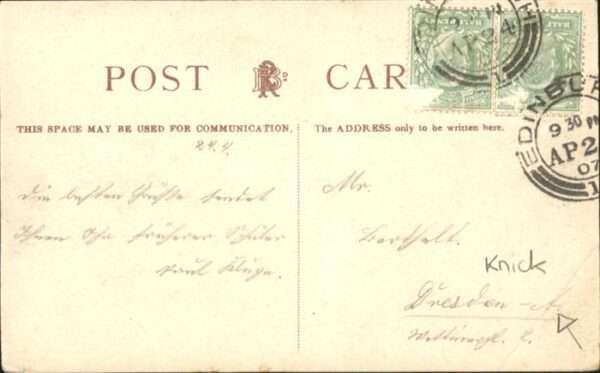 HALF PENNY
HALF
EDINBURGH
9 30 PM
AP 24
07
1
POST CARD
THIS SPACE MAY BE USED FOR COMMUNICATION.
The ADDRESS only to be written here.
24.4.
Die besten Grüße sendet
Ihnen Ihr früherer Schüler
Paul Kluge.
Mr.
Berthelt.
Knick
Dresden-A.